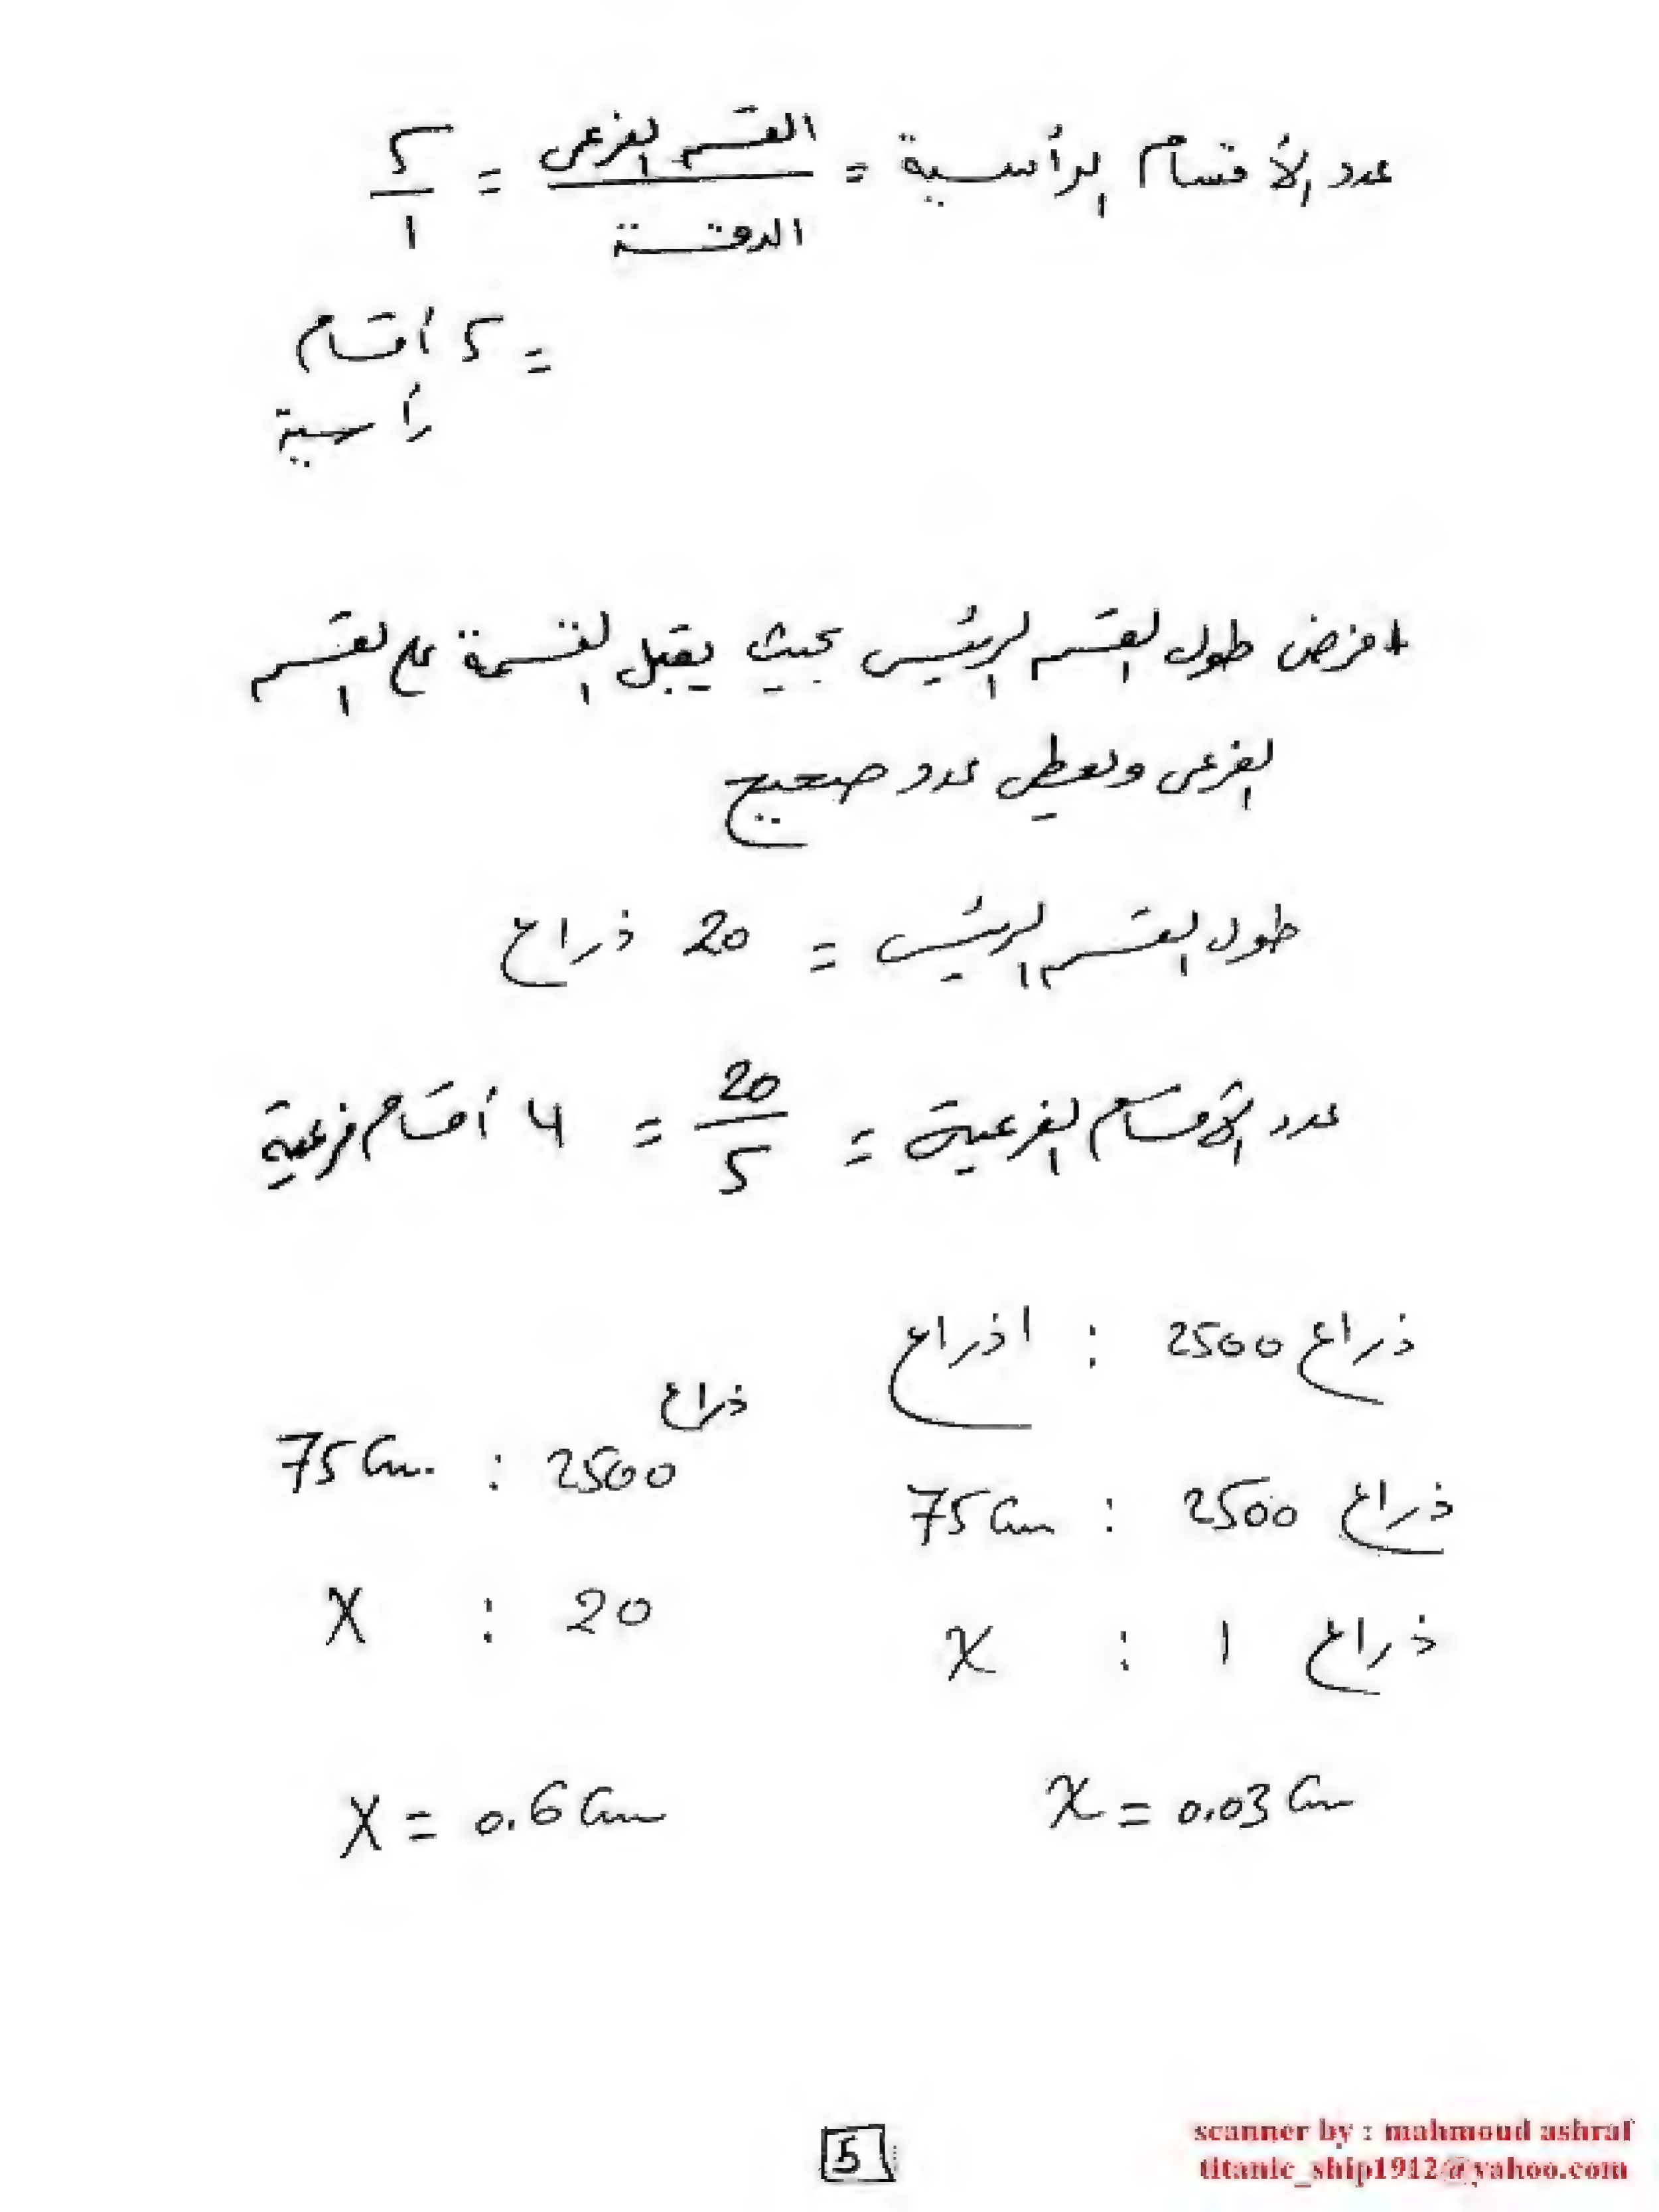 عدد الأقسام الرأسية = القسم الفرعى / الدقة = 5 / 1
= 5 أقسام
رأسية
* فرض طول القسم الرئيس بحيث يقبل القسمة على القسم
الفرعى ويعطى عدد صحيح
طول القسم الرئيس = 20 ذراع
عدد الأقسام الفرعية = 20 / 5 = 4 أقسام فرعية
1 ذراع : 2500 ذراع
75 Cm : 2500 ذراع
x : 1 ذراع
x = 0.03 Cm
75 Cm. : 2500 ذراع
X : 20
X = 0.6 Cm
5
scanner by : mahmoud ashraf
titanic_ship1912@yahoo.com